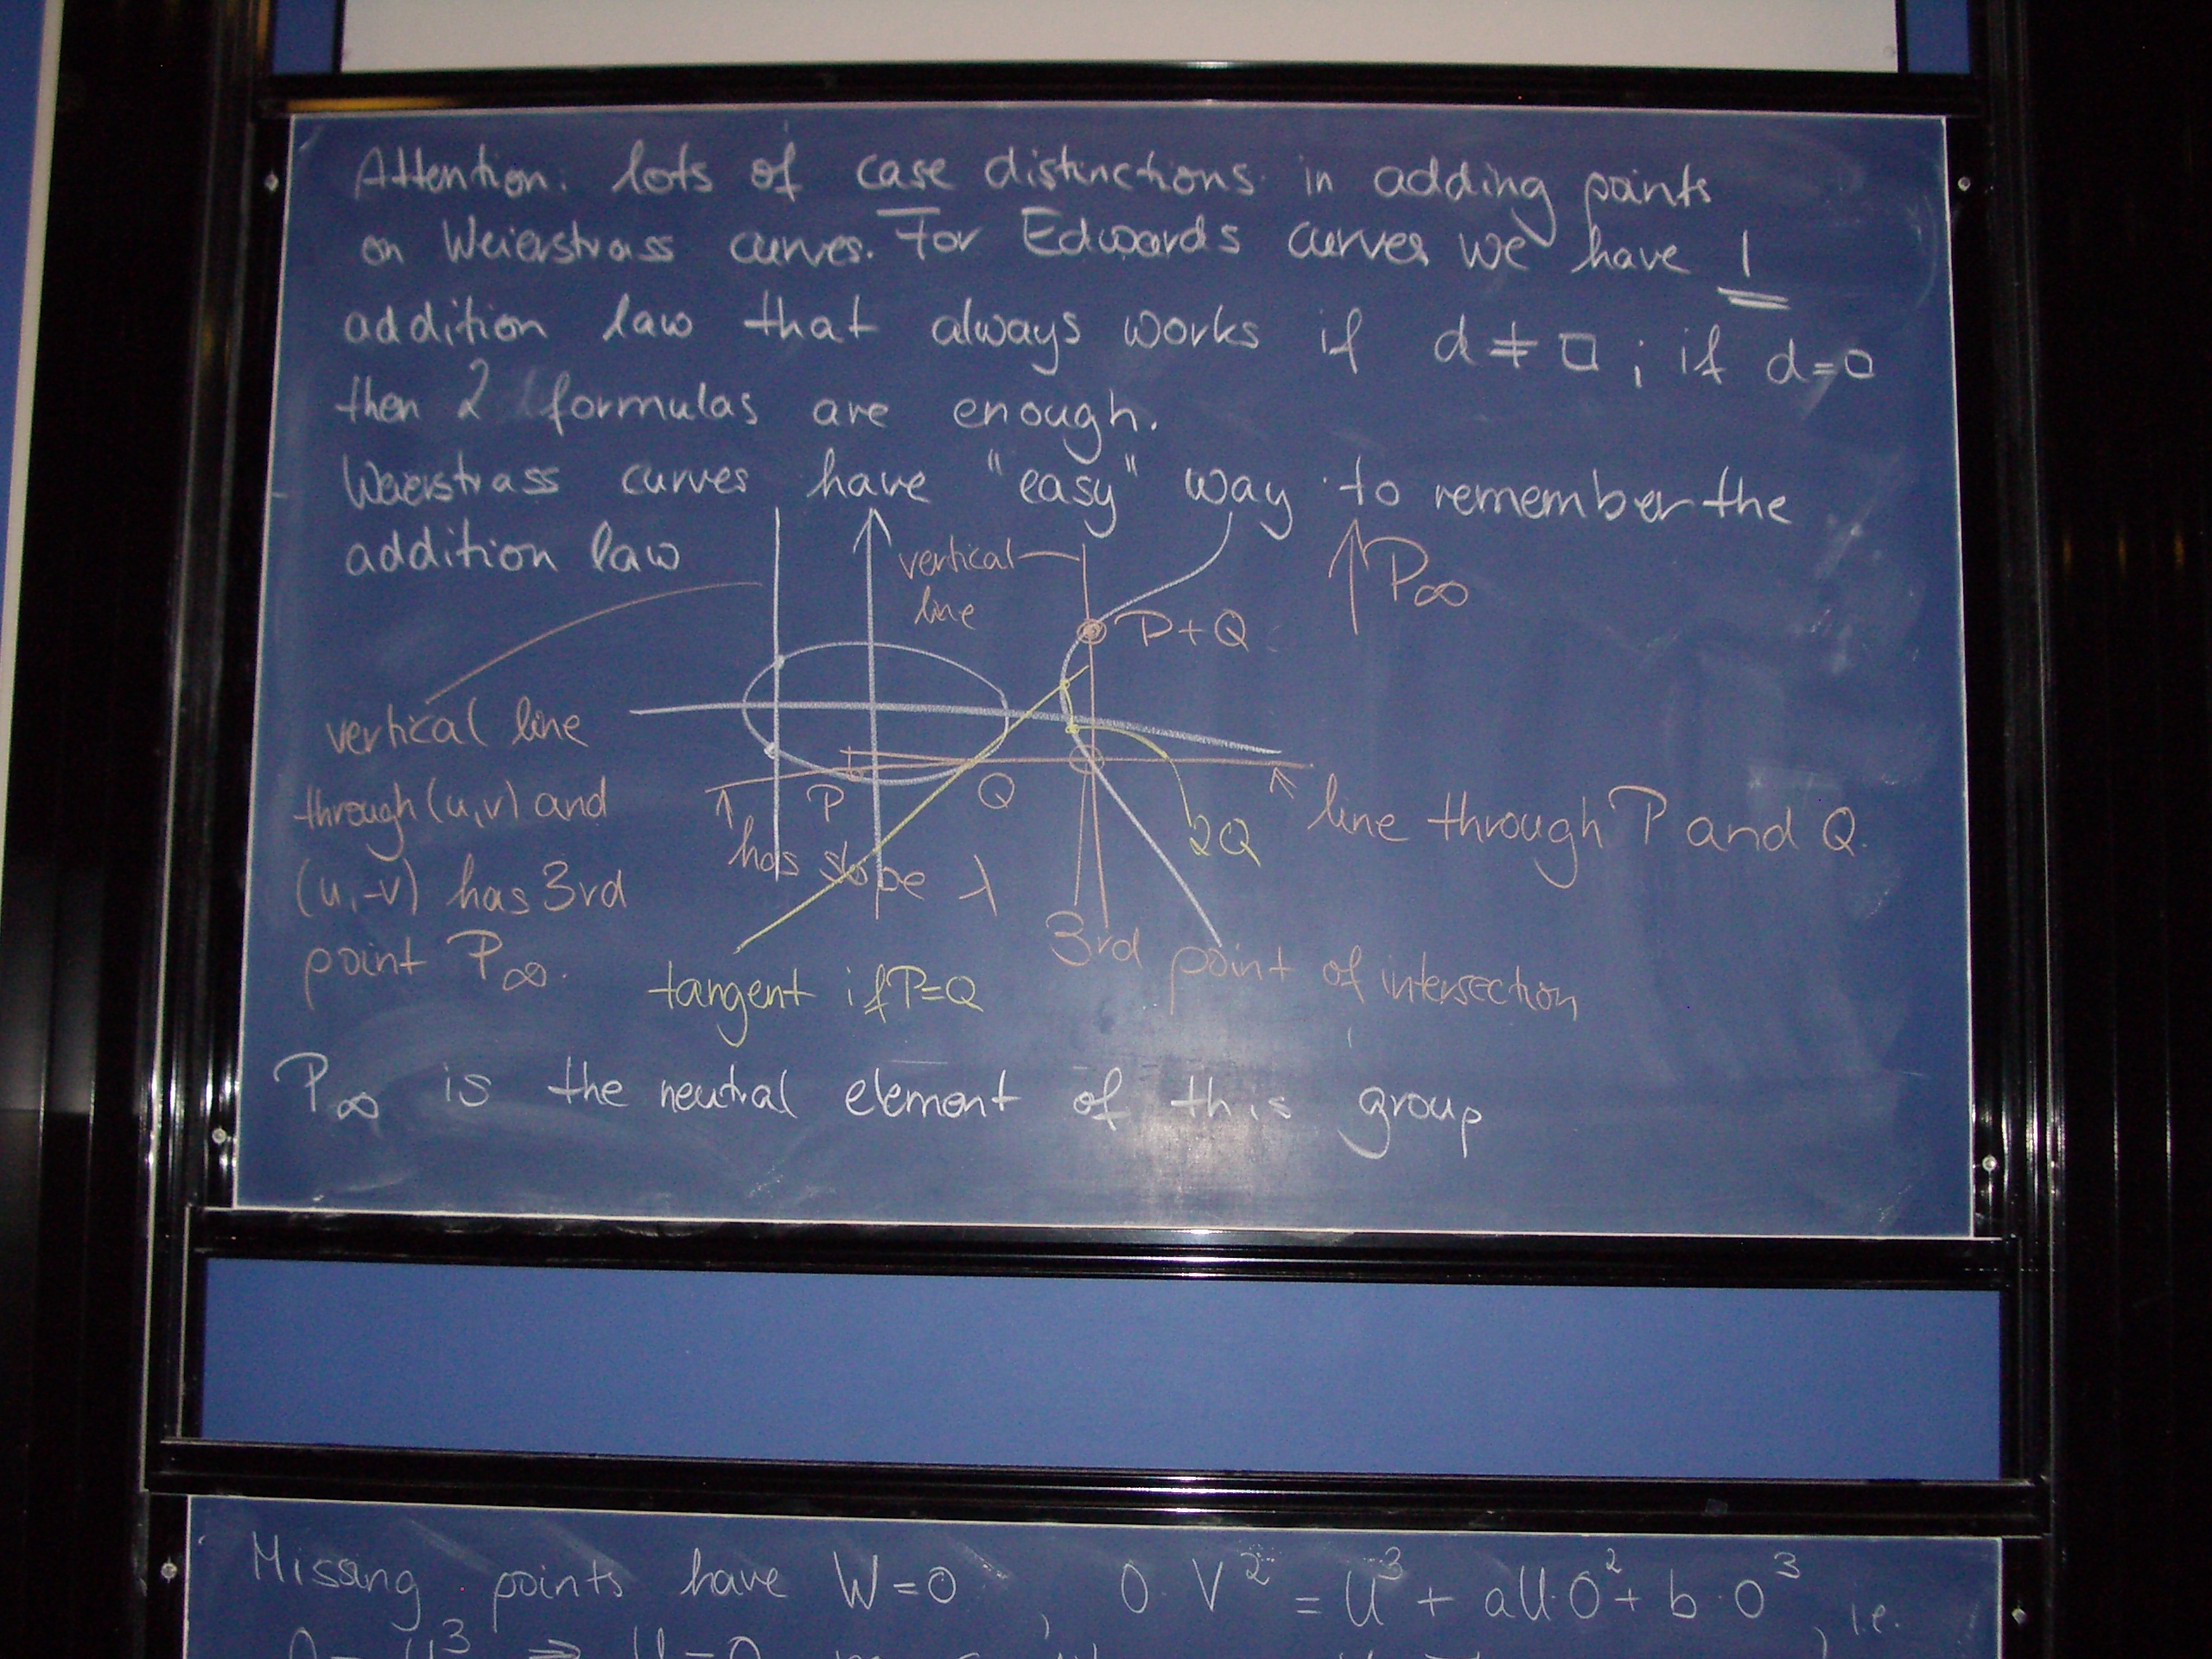 Attention: lots of case distinctions in adding points
on Weierstrass curves. For Edwards curves we have 1
addition law that always works if d ≠ □ ; if d = □
then 2 formulas are enough.
Weierstrass curves have "easy" way to remember the
addition law
vertical
line
P∞
P+Q
vertical line
through (u,v) and
(u,-v) has 3rd
point P∞.
P
Q
has slope λ
2Q
line through P and Q.
3rd point of intersection
tangent if P=Q
P∞ is the neutral element of this group
Missing points have W=0, 0·V² = U³ + aU·0² + b·0³, i.e.
0 = U³ ⇒ U=0